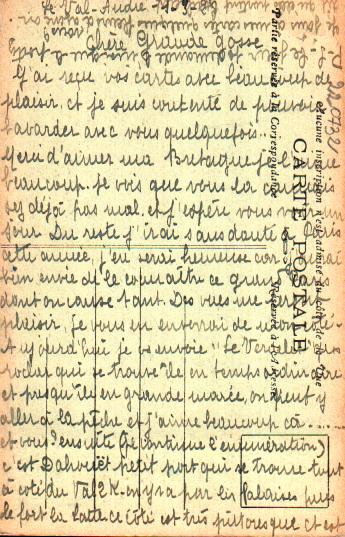 Le Val-André
Chère Grande gosse
J'ai reçu vos cartes avec beaucoup de
plaisir, et je suis contente de pouvoir
bavarder avec vous quelquefois.
Merci d'aimer ma Bretagne je l'aime
beaucoup. Je vois que vous la connais
sez déjà pas mal. et j'espère vous voir un
jour. Du reste j'irai sans doute à Paris
cette année, j'en serai heureuse car j'ai
bien envie de le connaître ce grand Paris
dont on cause tant. Des vues me feront
plaisir, je vous en enverrai de mon côté.
Aujourd'hui je vs envoie "Le Verdelet"
rocher qui se trouve île en temps ordinaire
et presqu'île en grande marée, on vient y
aller à la pêche et j'aime beaucoup ça....
et vous? ensuite (je continue l'énumération)
c'est Dahouët petit port qui se trouve tout
à côté du Val 2 K. on y va par les falaises puis
le fort la Latte ce côté est très pittoresque et est
CARTE POSTALE
Aucune inscription n'est admise du côté de la Vue
Partie réservée à la Correspondance
Réservé à l'Adresse